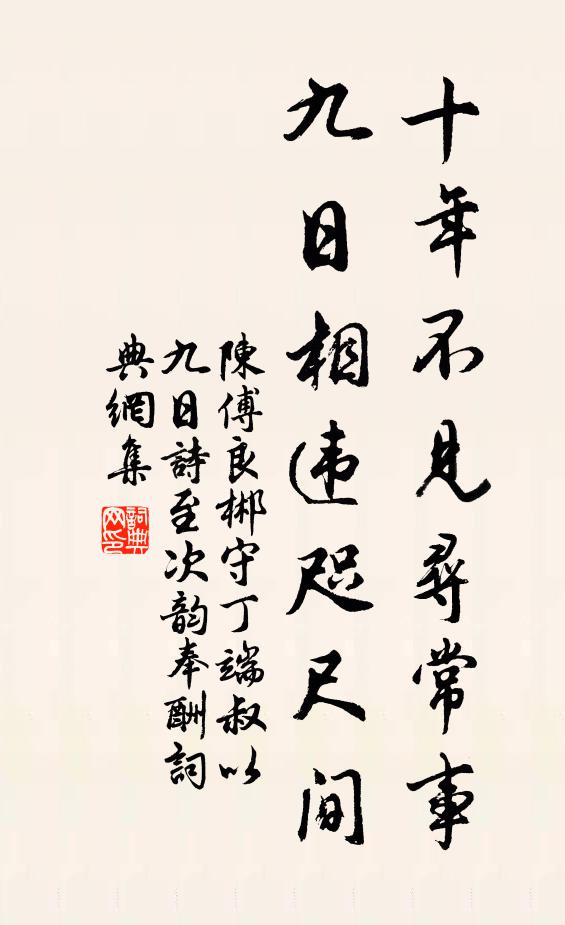 十年不見尋常事
九日相违咫尺间
陳傅良郴守丁端叔以
九日詩至次韵奉酬詞
典網集
詞典网印